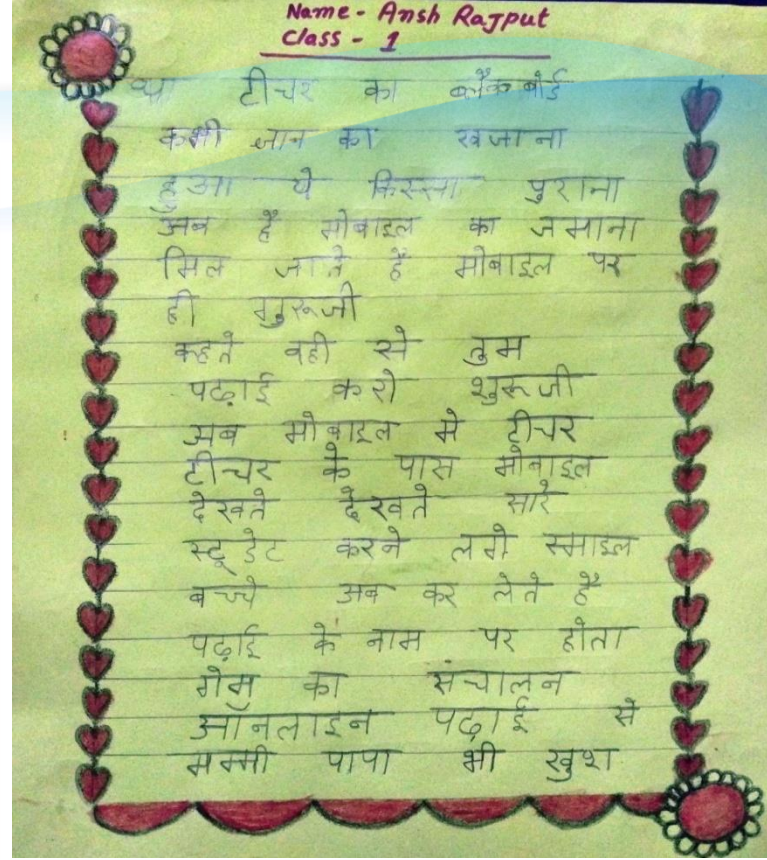 Name - Ansh Rajput
Class - 1
था टीचर का ब्लैक बोर्ड
कभी ज्ञान का खजाना
हुआ ये किस्सा पुराना
अब है मोबाइल का जमाना
मिल जाते है मोबाइल पर
ही गुरूजी
कहते वही से तुम
पढ़ाई करो शुरूजी
अब मोबाइल मे टीचर
टीचर के पास मोबाइल
देखते देखते सारे
स्टूडेट करने लगे स्माइल
बच्चे अब कर लेते है
पढ़ाई के नाम पर होता
गेम का संचालन
ऑनलाइन पढ़ाई से
मम्मी पापा भी खुश